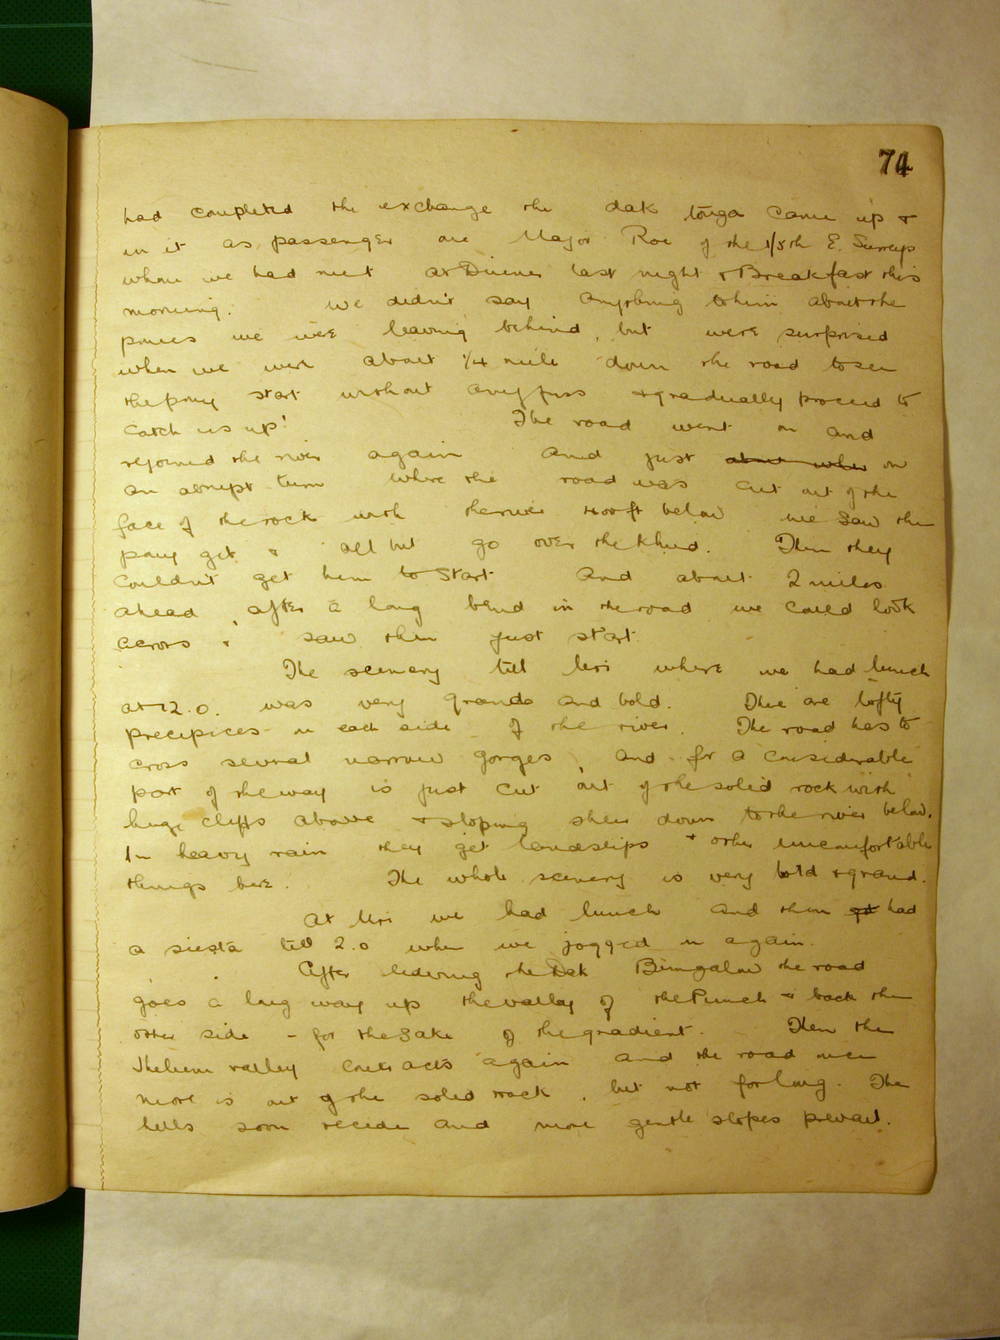 74
had completed the exchange the dak tonga came up &
in it as passenger one Major Roe of the 1/5th E. Surreys
whom we had met at Dinner last night & Breakfast this
morning. We didn't say anything to him about the
ponies we were leaving behind, but were surprised
when we were about 1/4 mile down the road to see
the pony start without any fuss & gradually proceed to
catch us up! The road went on and
rejoined the river again and just about when on
an abrupt turn where the road was cut out of the
face of the rock with the river 400 ft below we saw the
pony get & all but go over the khud. Then they
couldn't get him to start and about 2 miles
ahead, after a long bend in the road we could look
across & saw them just start.
The scenery till Uri where we had lunch
at 12.0. was very grand and bold. There are lofty
precipices on each side of the river. The road has to
cross several narrow gorges, and for a considerable
part of the way is just cut out of the solid rock with
huge cliffs above & sloping sheer down to the river below.
In heavy rain they get landslips & other uncomfortable
things here. The whole scenery is very bold & grand.
At Uri we had lunch and then had
a siesta till 2.0 when we jogged on again.
After leaving the Dak Bungalow the road
goes a long way up the valley of the Punch & back the
other side - for the sake of the gradient. Then the
Jhelum valley contracts again and the road once
more is out of the solid rock, but not for long. The
hills soon recede and more gentle slopes prevail.